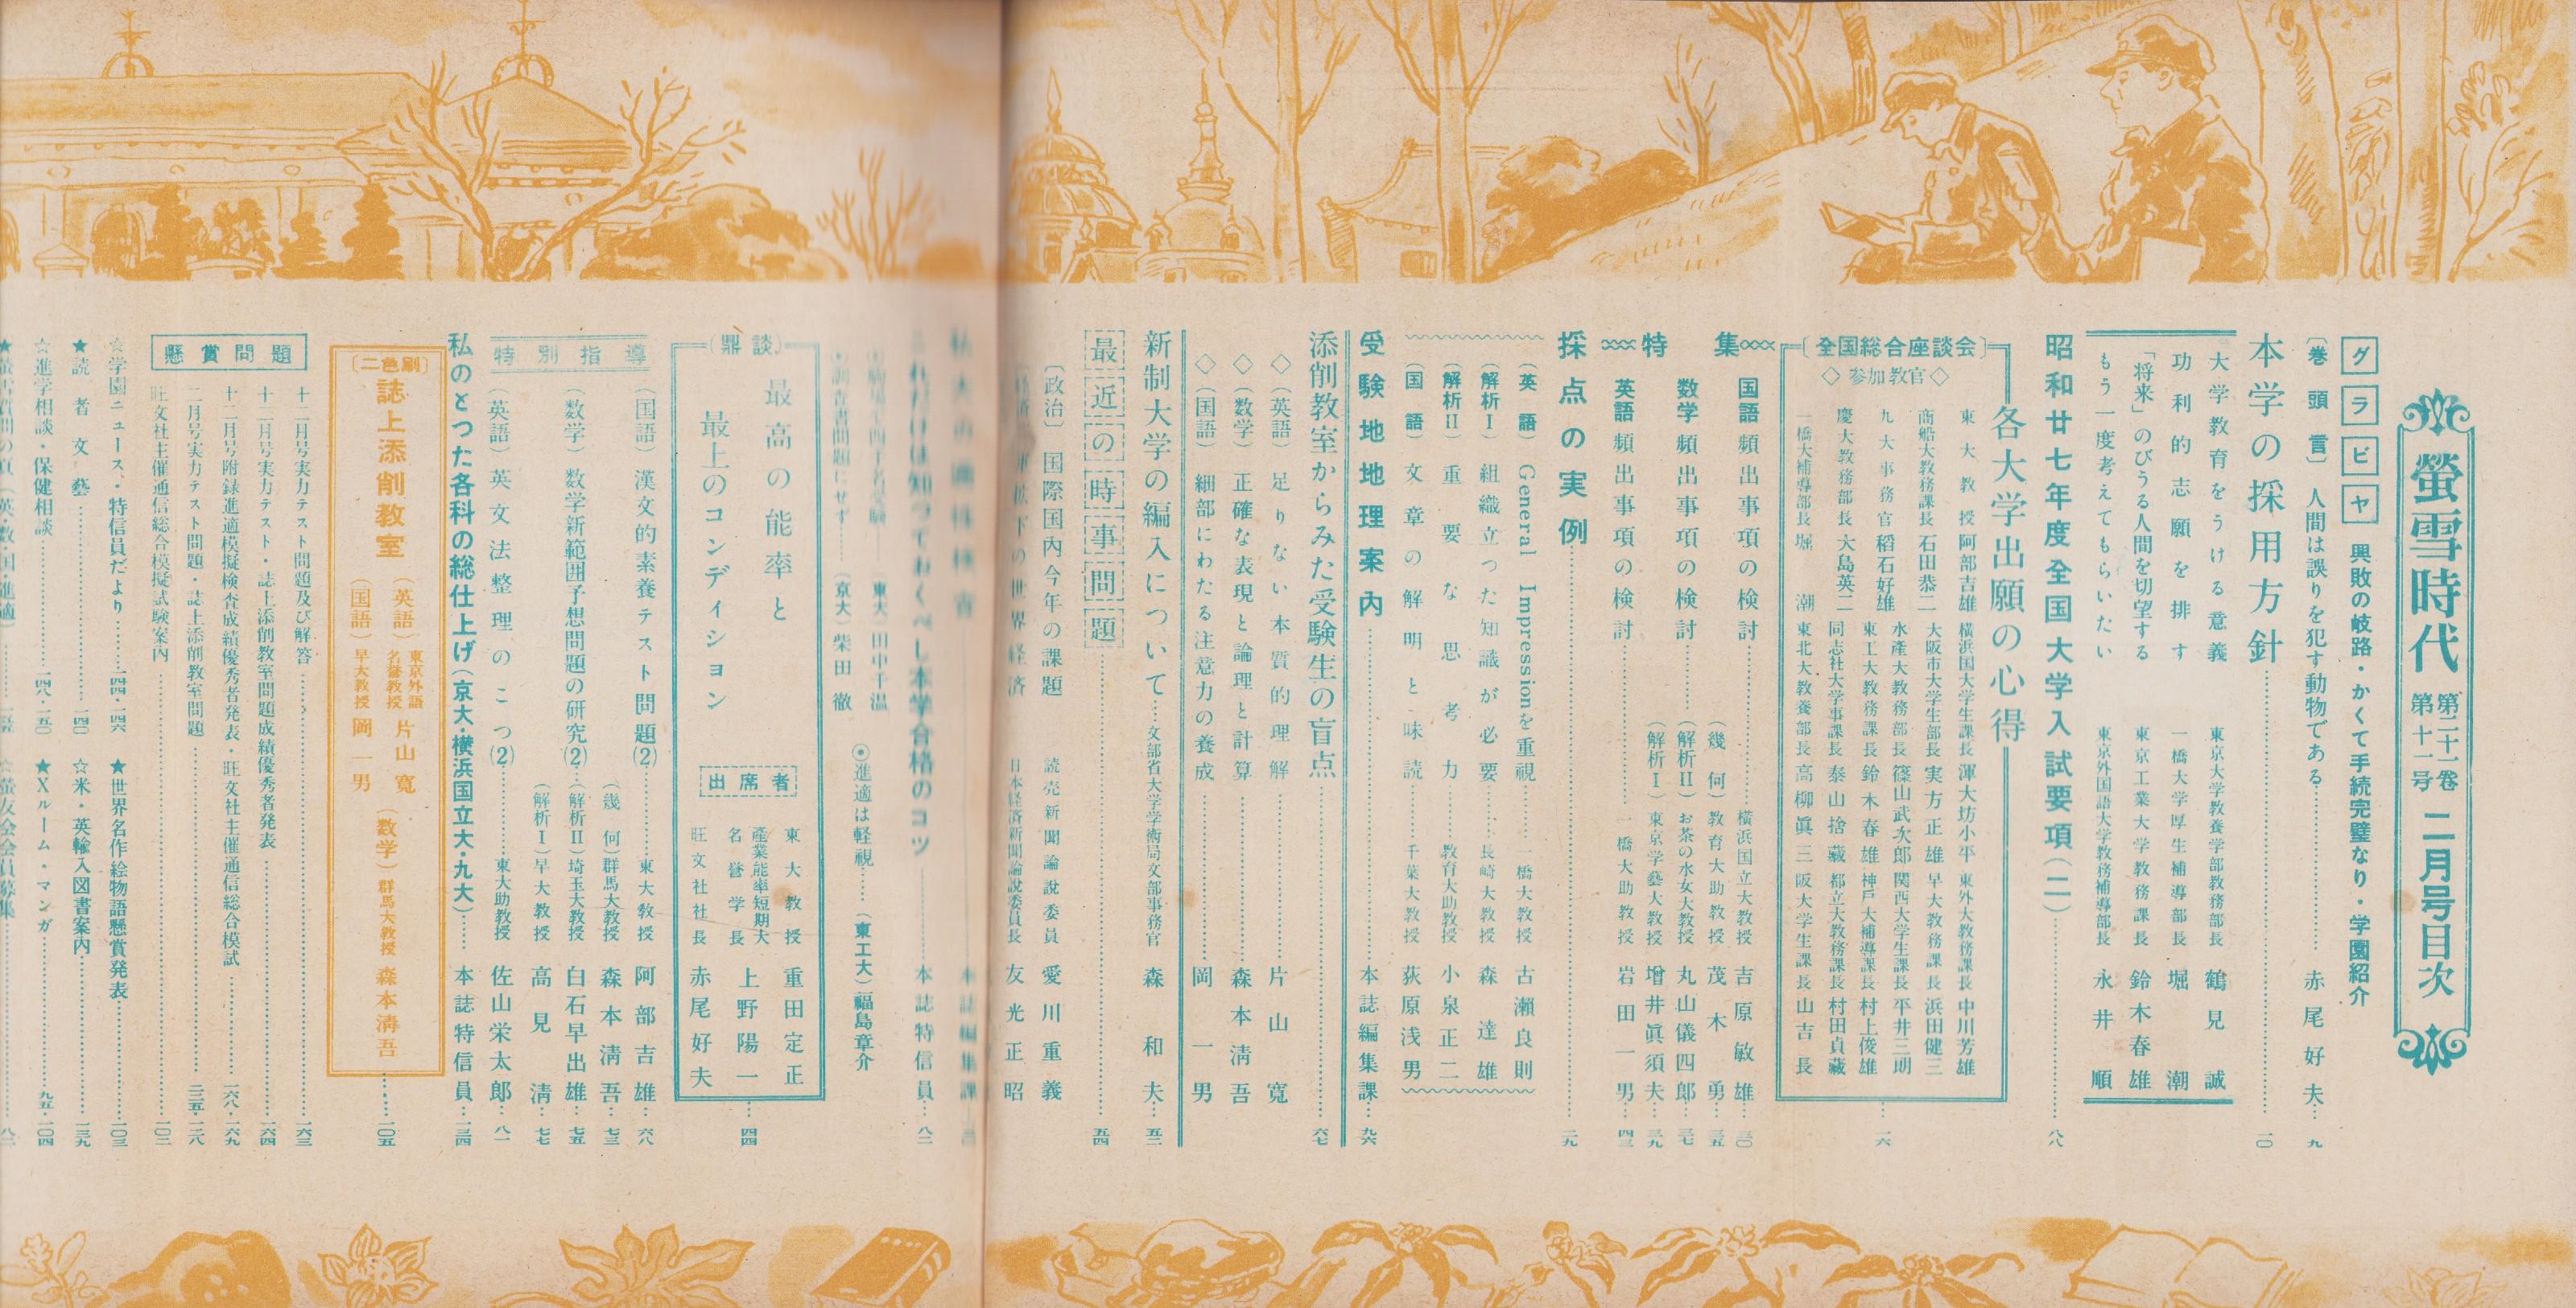 螢雪時代 第二十一巻 第十一号 二月号目次
グラビヤ 興敗の岐路・かくて手続完璧なり・学園紹介
〔巻頭言〕人間は誤りを犯す動物である……赤尾好夫…九
本学の採用方針……一〇
大学教育をうける意義 東京大学教養学部教務部長 鶴見誠
功利的志願を排す 一橋大学厚生補導部長 堀潮
「将来」のびうる人間を切望する 東京工業大学教務課長 鈴木春雄
もう一度考えてもらいたい 東京外国語大学教務補導部長 永井順
昭和廿七年度全国大学入試要項(二)……八八
全国総合座談会
各大学出願の心得……一六
◇参加教官◇
東大教授 阿部吉雄 横浜国大学生課長 渾大坊小平 東外大教務課長 中川芳雄
商船大教務課長 石田恭二 大阪市大学生部長 実方正雄 早大教務課長 浜田健三
九大事務官 稲石好雄 水産大教務部長 篠山武次郎 関西大学生課長 平井三朗
慶大教務部長 大島英二 東工大教務課長 鈴木春雄 神戸大補導課長 村上俊雄
同志社大学事課長 泰山捨藏 都立大教務課長 村田貞藏
一橋大補導部長 堀潮 東北大教養部長 高柳眞三 阪大学生課長 山吉長
特集
国語頻出事項の検討……横浜国立大教授 吉原敏雄…三〇
数学頻出事項の検討……
(幾何)教育大助教授 茂木勇…三五
(解析II)お茶の水女大教授 丸山儀四郎…三七
(解析I)東京学藝大教授 増井眞須夫…三九
英語頻出事項の検討……一橋大助教授 岩田一男…四三
採点の実例……二九
(英語)General Impressionを重視……一橋大教授 古瀬良則
(解析I)組織立つた知識が必要……長崎大教授 森達雄
(解析II)重要な思考力 教育大助教授 小泉正二
(国語)文章の解明と味読……千葉大教授 荻原浅男
受験地地理案内……本誌編集課…九六
添削教室からみた受験生の盲点……六七
◇(英語)足りない本質的理解……片山寛
◇(数学)正確な表現と論理と計算……森本清吾
◇(国語)細部にわたる注意力の養成……岡一男
新制大学の編入について……文部省大学学術局文部事務官 森和夫…五二
最近の時事問題……五四
〔政治〕国際国内今年の課題 読売新聞論説委員 愛川重義
拡下の世界経済 日本経済新聞論説委員長 友光正昭
これだけは知つておくべし本学合格のコツ……本誌特信員…八二
(東大)田中千温
(京大)柴田徹
◉進適は軽視……(東工大)福島章介
(鼎談)
最高の能率と最上のコンディション…四四
出席者
東大教授 重田定正
産業能率短期大名誉学長 上野陽一
旺文社社長 赤尾好夫
特別指導
(国語)漢文的素養テスト問題(2)……東大教授 阿部吉雄…六八
(数学)数学新範囲予想問題の研究(2)…
(幾何)群馬大教授 森本清吾…七三
(解析II)埼玉大教授 白石早出雄…七五
(解析I)早大教授 高見清…七七
(英語)英文法整理のこつ(2)……東大助教授 佐山栄太郎…八一
私のとつた各科の総仕上げ(京大・横浜国立大・九大)……本誌特信員…三四
〔二色刷〕
誌上添削教室……一〇五
(英語)東京外語名誉教授 片山寛
(国語)早大教授 岡一男
(数学)群馬大教授 森本清吾
懸賞問題
十二月号実力テスト問題及び解答……一六三
十二月号実力テスト・誌上添削教室問題成績優秀者発表……一六四
十二月号附録進適模擬検査成績優秀者発表・旺文社主催通信総合模試……一六八・一六九
二月号実力テスト問題・誌上添削教室問題……三五・二八
旺文社主催通信総合模擬試験案内……一〇二
☆学園ニュース・特信員だより……一四四・一四六
★世界名作絵物語懸賞発表……一〇三
★読者文藝……一四〇
☆米・英輸入図書案内……一三九
☆進学相談・保健相談……一四八・一五〇
★Xルーム・マンガ……九五・一〇四
☆螢友会会員募集……八二